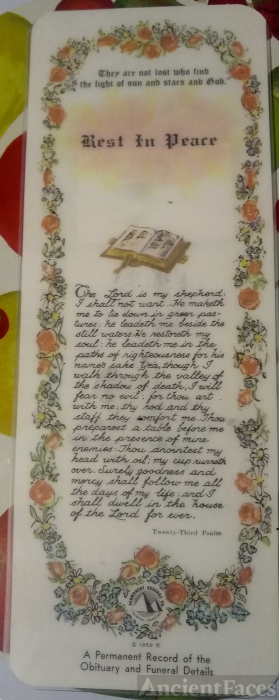 They are not lost who find
the light of sun and stars and God.
Rest In Peace
The Lord is my shepherd:
I shall not want. He maketh
me to lie down in green pas-
tures: he leadeth me beside the
still waters. He restoreth my
soul: he leadeth me in the
paths of righteousness for his
name's sake. Yea, though I
walk through the valley of
the shadow of death, I will
fear no evil: for thou art
with me; thy rod and thy
staff they comfort me. Thou
preparest a table before me
in the presence of mine
enemies: Thou anointest my
head with oil; my cup runneth
over. Surely goodness and
mercy shall follow me all
the days of my life: and I
shall dwell in the house
of the Lord for ever.
Twenty-Third Psalm
© 1959
A Permanent Record of the
Obituary and Funeral Details
AncientFaces